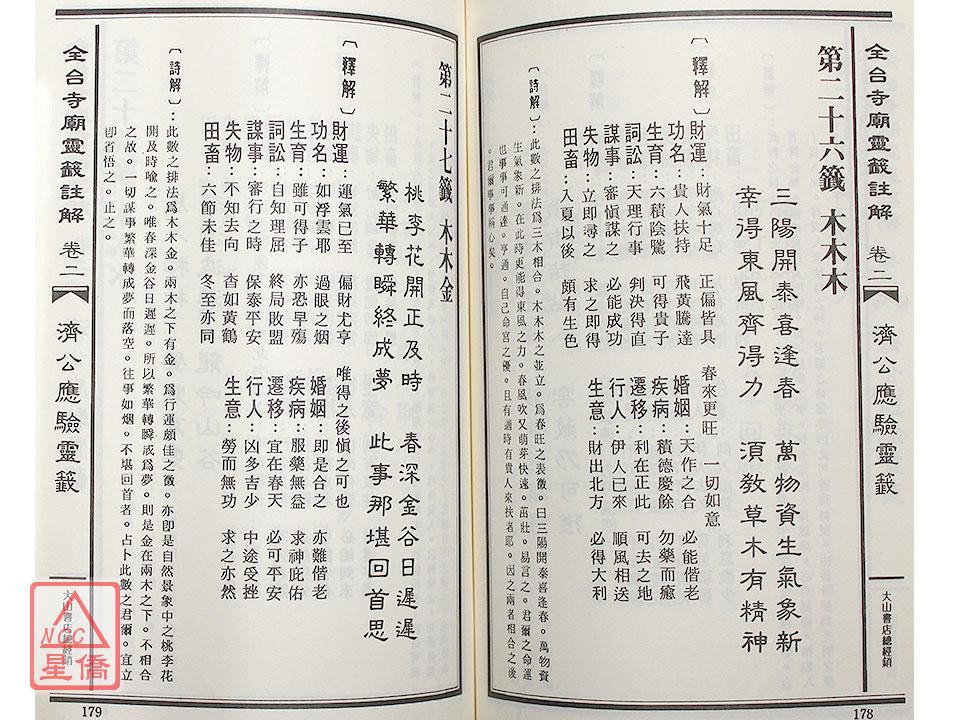 全台寺廟靈籤註解 卷二 濟公應驗靈籤
大山書店總經銷
178
第二十六籤 木木木
三陽開泰喜逢春 萬物資生氣象新
幸得東風齊得力 須教草木有精神
〔釋解〕財運：財氣十足 正偏皆具 春來更旺 一切如意
功名：貴人扶持 飛黃騰達 婚姻：天作之合 必能偕老
生育：六積陰騭 可得貴子 疾病：積德慶餘 勿藥而癒
詞訟：天理行事 判決得直 遷移：利在正此 可去之地
謀事：審慎謀之 必能成功 行人：伊人已來 順風相送
失物：立即尋之 求之即得 生意：財出北方 必得大利
田畜：入夏以後 頗有生色
〔詩解〕：此數之排法為三木相合。木木木之並立。為春旺之表徵。曰三陽開泰喜逢春。萬物資
生氣象新。在此時更能得東風之力。春風吹又萌芽快速。茁壯。易言之。君爾之命運
也事事可通達。亨通。自己命宮之優。且有適時有貴人來扶者耶。因之兩者相合之後
。君爾事事稱心矣。
第二十七籤 木木金
桃李花開正及時 春深金谷日遲遲
繁華轉瞬終成夢 此事那堪回首思
〔釋解〕財運：運氣已至 偏財尤亨 唯得之後慎之可也
功名：如浮雲耶 過眼之烟 婚姻：即是合之 亦難偕老
生育：雖可得子 亦恐早殤 疾病：服藥無益 求神庇佑
詞訟：自知理屈 終局敗盟 遷移：宜在春天 必可平安
謀事：審行之時 保泰平安 行人：凶多吉少 中途受挫
失物：不知去向 杳如黃鶴 生意：勞而無功 求之亦然
田畜：六節未佳 冬至亦同
〔詩解〕：此數之排法為木木金。兩木之下有金。為行運頗佳之徵。亦即是自然景象中之桃李花
開及時喻之。唯春深金谷日遲遲。所以繁華轉瞬成為夢。則是金在兩木之下。不相合
之故。一切謀事繁華轉成夢而落空。往事如烟。不堪回首者。占卜此數之君爾。宜立
即省悟之。止之。
全台寺廟靈籤註解 卷二 濟公應驗靈籤
大山書店總經銷
179
NCC
星僑